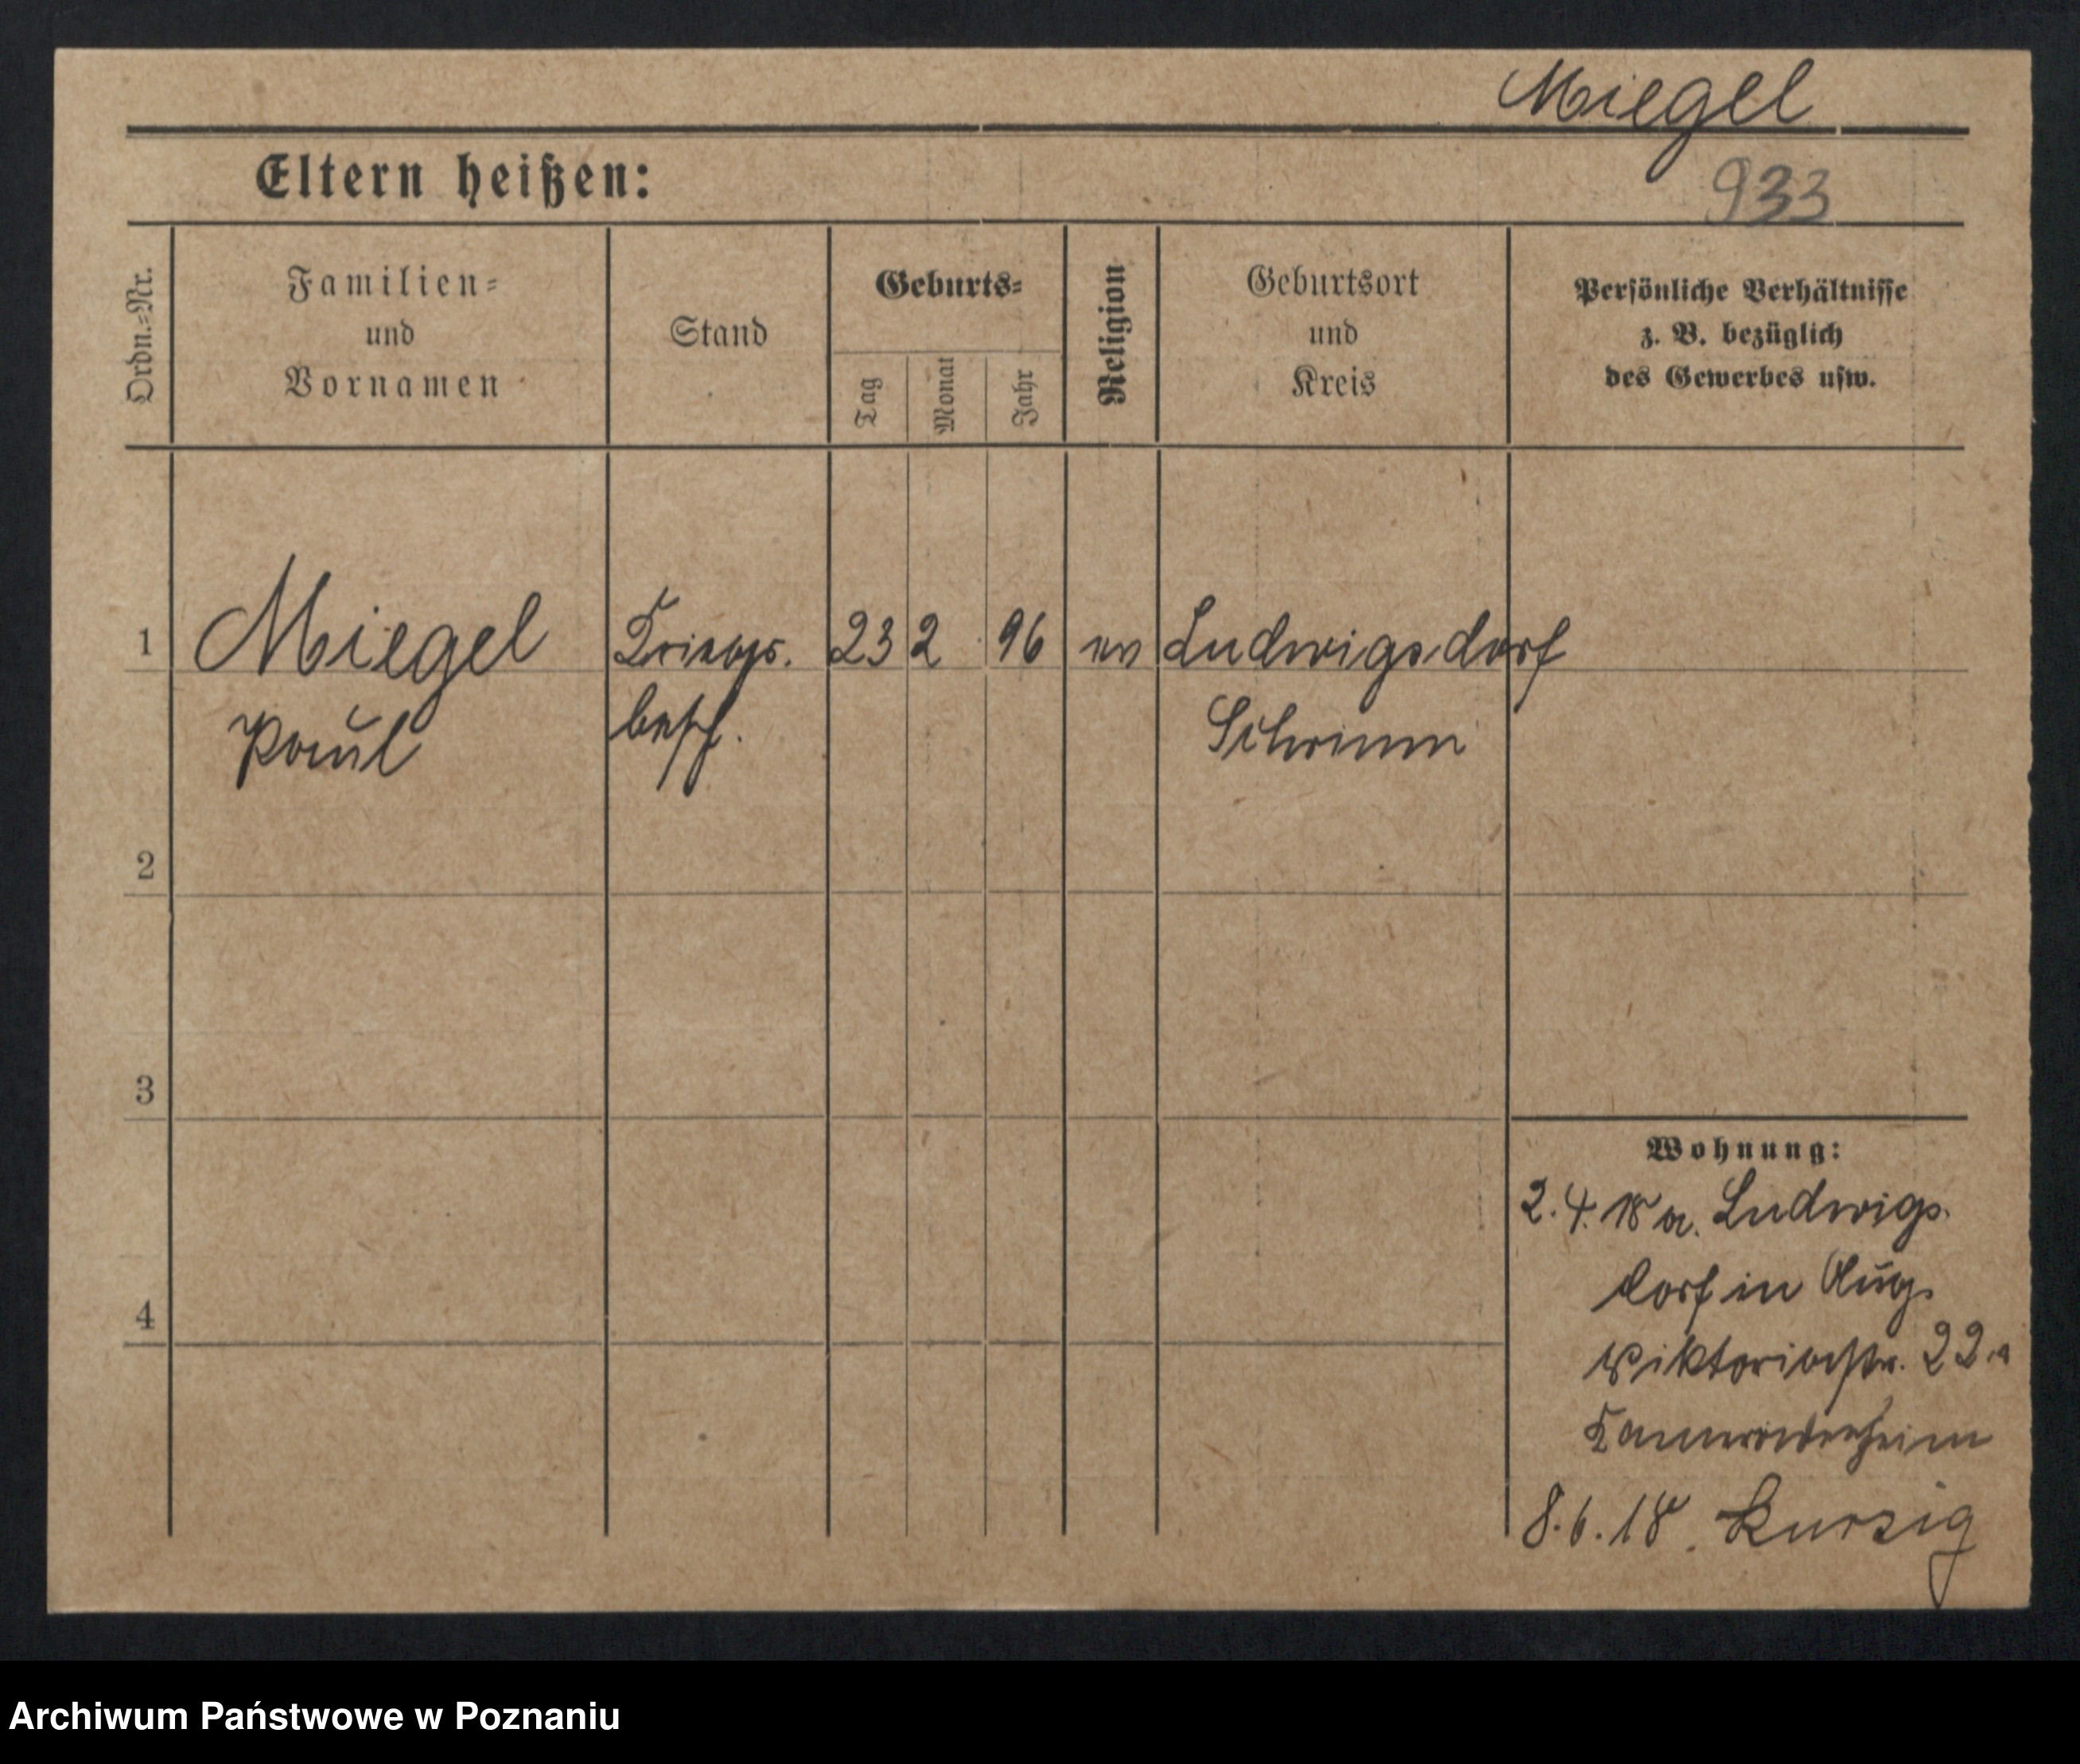 Miegel
Eltern heißen:
933
Ordn.=Nr.
Familien=
und
Vornamen
Stand
Geburts=
Tag
Monat
Jahr
Religion
Geburtsort
und
Kreis
Persönliche Verhältnisse
z. B. bezüglich
des Gewerbes usw.
1
Miegel
Kriegs.
23
2
96
ev
Ludwigsdorf
Paul
besch.
Schrimm
2
3
4
Wohnung:
2. 4. 18 a. Ludwigs.
dorf in Aug.
Viktoriastr. 22.
8. 6. 18. Kursig
Archiwum Państwowe w Poznaniu